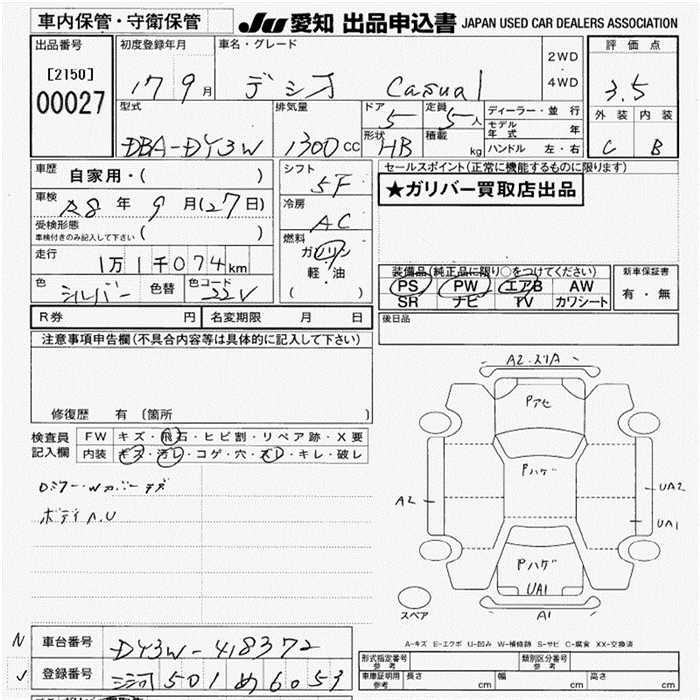 車内保管・守衛保管
JU 愛知 出品申込書 JAPAN USED CAR DEALERS ASSOCIATION
出品番号 初度登録年月 車名・グレード 2WD 評価点
[2150] 17 9月 デミオ Casual ・ 3.5
00027 4WD
型式 排気量 ドア 定員 ディーラー・並行 外装 内装
DBA-DY3W 1300cc 5 5人 モデル年式 年 C B
形状 HB 積載 kg ハンドル 左・右
車歴 自家用・( ) シフト 5F セールスポイント(正常に機能するものに限ります)
車検 R8年 9月(27日) 冷房 AC ★ガリバー買取店出品
受検形態 車検付きのみ記入して下さい ( ) 燃料 ガソリン
走行 1万1千074km 軽・油
( )
色 シルバー 色替 色コード 22V
装備品(純正品に限り○をつけてください) 新車保証書
PS PW エアB AW 有・無
SR ナビ TV カワシート
R券 円 名変期限 月 日 後日品
注意事項申告欄(不具合内容等は具体的に記入して下さい)
修復歴 有 〔箇所 〕
検査員記入欄 FW キズ・飛石・ヒビ割・リペア跡・X要
内装 キズ・汚レ・コゲ・穴・スレ・キレ・破レ
ボディA.U
A2
Pアセ
Pハゲ
A2
UA2
UA1
Pハゲ
UA1
A1
スペア
A-キズ E-エクボ U-凹み W-補修跡 S-サビ C-腐食 XX-交換済
N 車台番号 DY3W-418372 形式指定番号 参考 類別区分番号 参考
登録番号 三河 501 め 6053 車庫証明用 参考 長さ cm 幅 cm 高さ cm